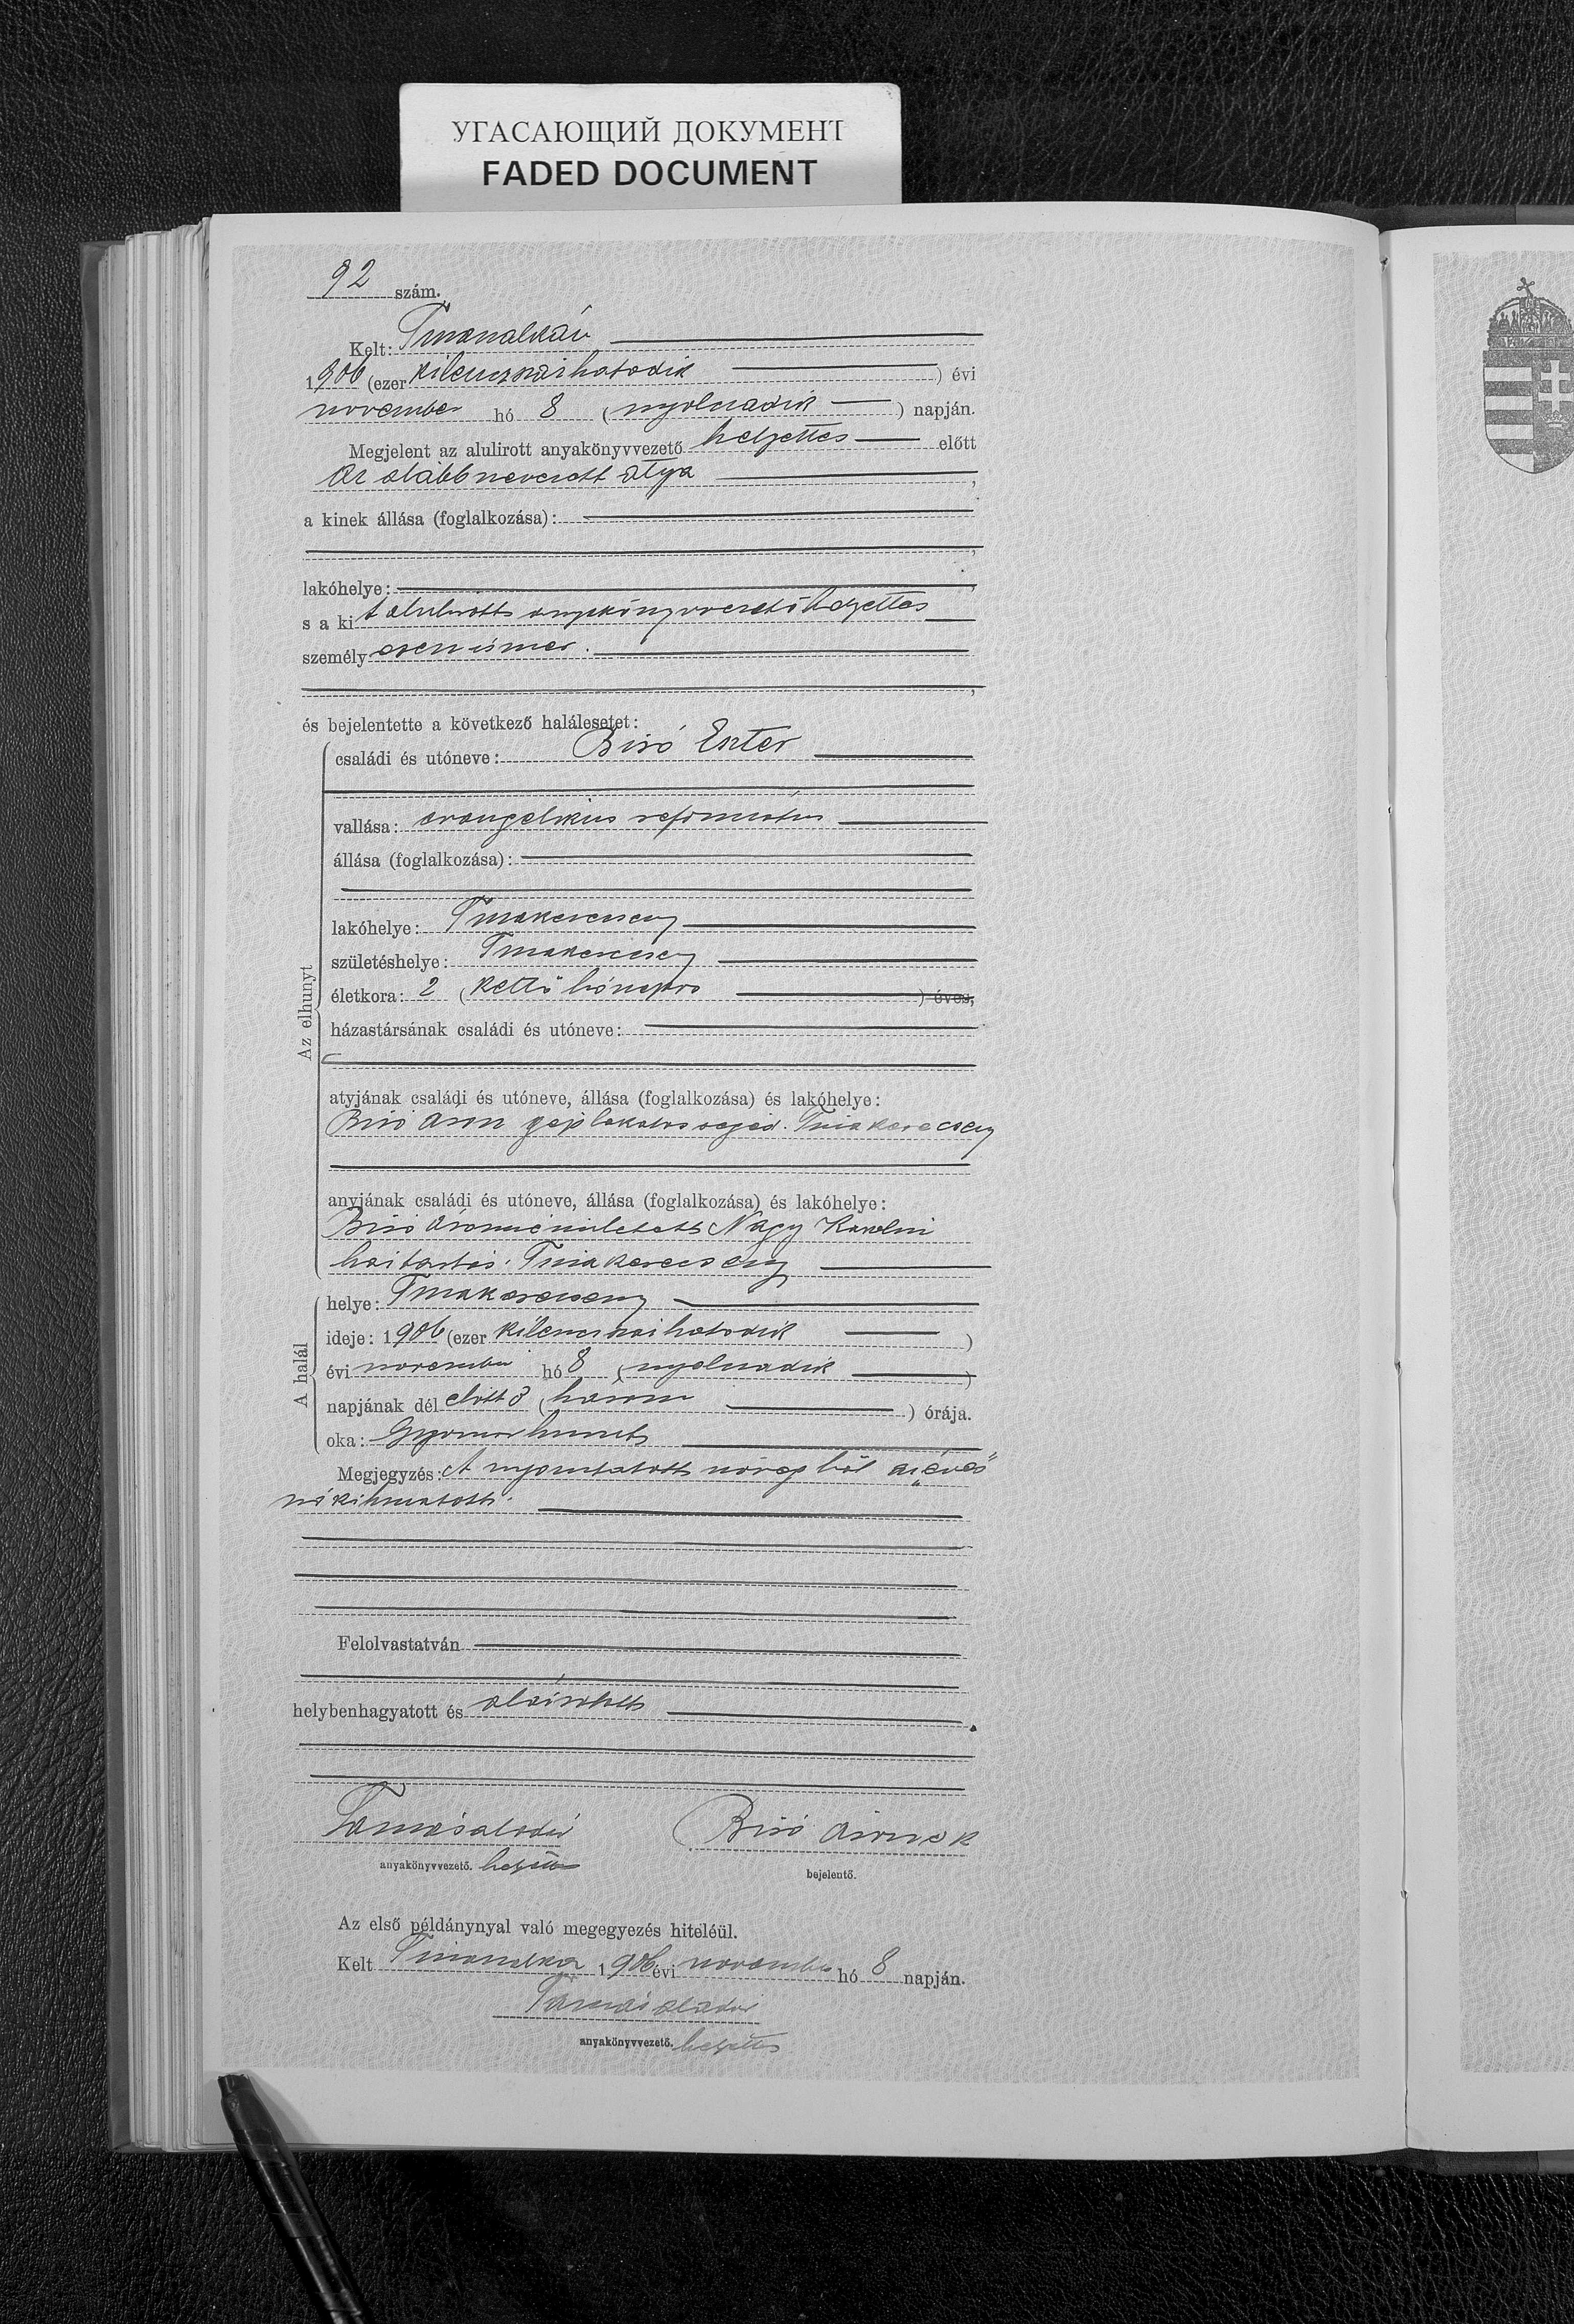 УГАСАЮЩИЙ ДОКУМЕНТ
FADED DOCUMENT
92 szám.
Kelt:
1906 (ezer kilenczszázhatodik ) évi
november hó 8 ( nyolczadik ) napján.
Megjelent az alulirott anyakönyvvezető helyettes előtt
az alább nevezett atya ,
a kinek állása (foglalkozása):
,
lakóhelye: ,
s a ki t alulirott anyakönyvvezető helyettes
személy esen ismer.
,
és bejelentette a következő halálesetet:
Az elhunyt
családi és utóneve: Biró Eszter
vallása: evangelikus református
állása (foglalkozása):
lakóhelye:
születéshelye:
életkora: 2 ( kettő hónapos ) éves,
házastársának családi és utóneve:
atyjának családi és utóneve, állása (foglalkozása) és lakóhelye:
Biró Áron géplakatos segéd.
anyjának családi és utóneve, állása (foglalkozása) és lakóhelye:
Biró Áronné született Nagy
A halál
helye:
ideje: 1906 (ezer kilenczszázhatodik )
évi november hó 8 ( nyolczadik )
napjának dél előtt 3 ( három ) órája.
oka: Gyomorhurut
Megjegyzés: A nyomtatott szövegből az „éves"
szó kihuzatott.
Felolvastatván
helybenhagyatott és aláiratott .
Tamás Aladár Biró Áron s k
anyakönyvvezető. helyettes bejelentő.
Az első példánynyal való megegyezés hiteléül.
Kelt 1906 évi november hó 8 napján.
Tamás Aladár
anyakönyvvezető. helyettes